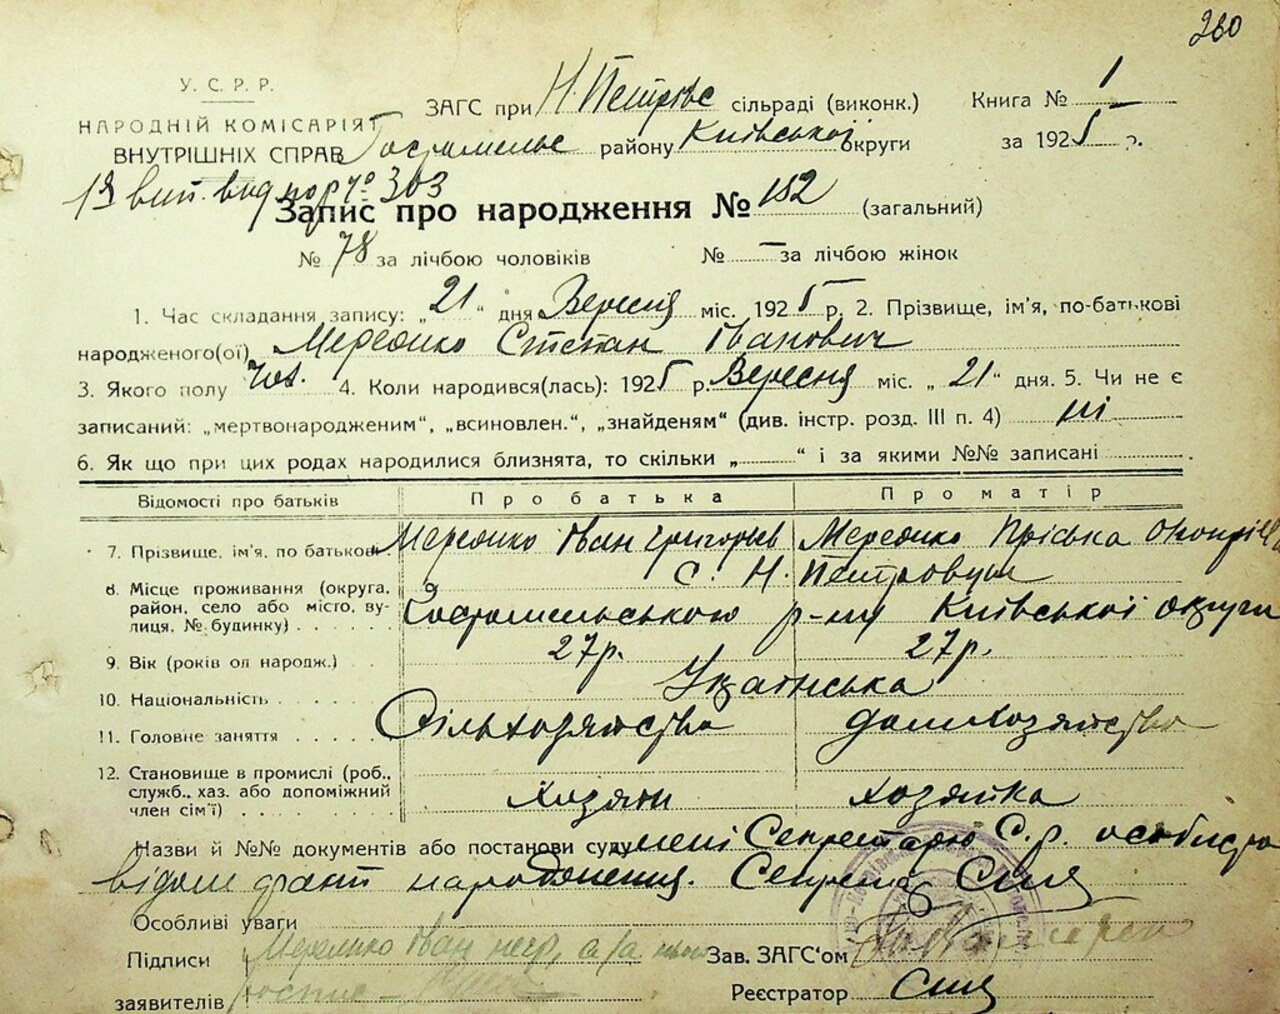 260
У. С. Р. Р.
НАРОДНІЙ КОМІСАРІЯТ
ВНУТРІШНІХ СПРАВ
ЗАГС при Н. Петрівс сільраді (виконк.)
Гостомельс району Київської округи
Книга № 1
за 1925 р.
вид № 303
Запис про народження № 152 (загальний)
№ 78 за лічбою чоловіків № — за лічбою жінок
1. Час складання запису: „21“ дня Вересня міс. 1925 р. 2. Прізвище, ім’я, по-батькові
народженого(ої) Степан Іванович
3. Якого полу Чол. 4. Коли народився(лась): 1925 р. Вересня міс. „21“ дня. 5. Чи не є
записаний: „мертвонародженим“, „всиновлен.“, „знайденям“ (див. інстр. розд. III п. 4) ні
6. Як що при цих родах народилися близнята, то скільки „ “ і за якими №№ записані
Відомості про батьків Про батька Про матір
7. Прізвище, ім’я, по батькові Іван Григорьев Пріська
8. Місце проживання (округа, район, село або місто, вулиця, № будинку) с. Н. Петровци
Гостомельського р-ну Київської округи
9. Вік (років од народж.) 27р. 27р.
10. Національність Українська
11. Головне заняття Сільхозяйство домохозяйство
12. Становище в промислі (роб., служб., хаз. або допоміжний член сім’ї) хозяин хозяйка
Назви й №№ документів або постанови суду мені Секретарю С.р. особисто
відом факт народження. Секретар
Особливі уваги
Підписи Іван негр, а за нього
заявителів
Зав. ЗАГС‘ом
Реєстратор